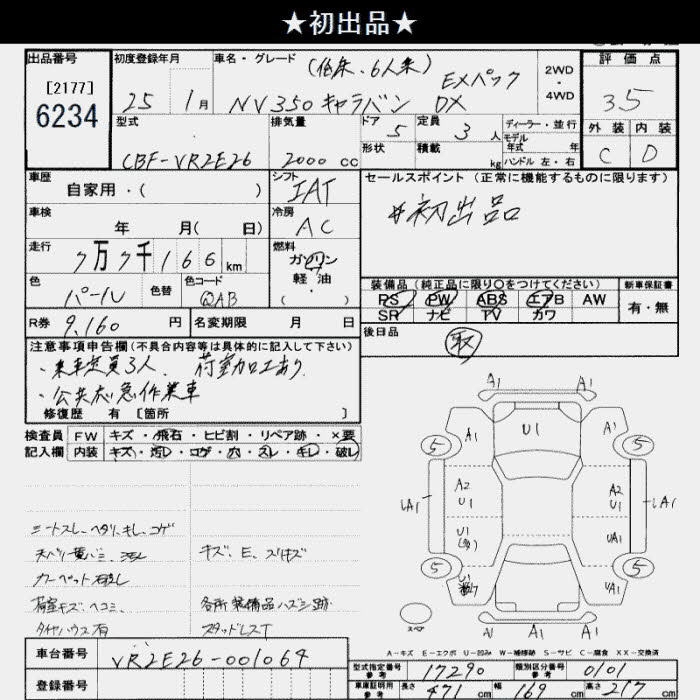 ★初出品★
出品番号
[2177]
6234
初度登録年月
25 1月
車名・グレード
(低床、6人乗) EXパック
NV350キャラバン DX
2WD
・
4WD
評価点
3.5
外装 内装
C D
型式
CBF-VR2E26
排気量
2000 cc
ドア
5
定員
3人
形状
積載
kg
ディーラー・並行
モデル
年式 年
ハンドル 左・右
車歴
自家用・( )
シフト
IAT
セールスポイント (正常に機能するものに限ります)
#初出品
車検
年 月( 日)
冷房
AC
走行
7万7千166km
燃料
ガソリン
軽油
( ・ )
色
パール
色替
色コード
QAB
装備品 (純正品に限り○をつけてください)
PS PW ABS エアB AW
SR ナビ TV カワ
新車保証書
有・無
R券
9,160 円
名変期限 月 日
後日品
取
注意事項申告欄 (不具合内容等は具体的に記入して下さい)
・乗車定員3人、荷室加工あり
・公共応急作業車
修復歴 有 [箇所 ]
検査員
記入欄
FW キズ・飛石・ヒビ割・リペア跡・×要
内装 キズ・汚レ・コゲ・穴・スレ・キレ・破レ
シートスレ、ヘタリ、キレ、コゲ
キズ、E、スリキズ
荷室キズ、ヘコミ、
各所装備品ハズシ跡
タイヤハウス有
スタッドレスT
A1 A1
A1 U1 A1
5 5
A2 A2
U1 U1
LA1 LA1
U1 UA1
5 5
U1 UA1
A1 A1 A1
スペア
A-キズ E-エクボ U-凹み W-補修跡 S-サビ C-腐食 XX-交換済
車台番号
VR2E26-001064
登録番号
型式指定番号
参考
17290
類別区分番号
参考
0101
車庫証明用
参考
長さ 471 cm 幅 169 cm 高さ 217 cm